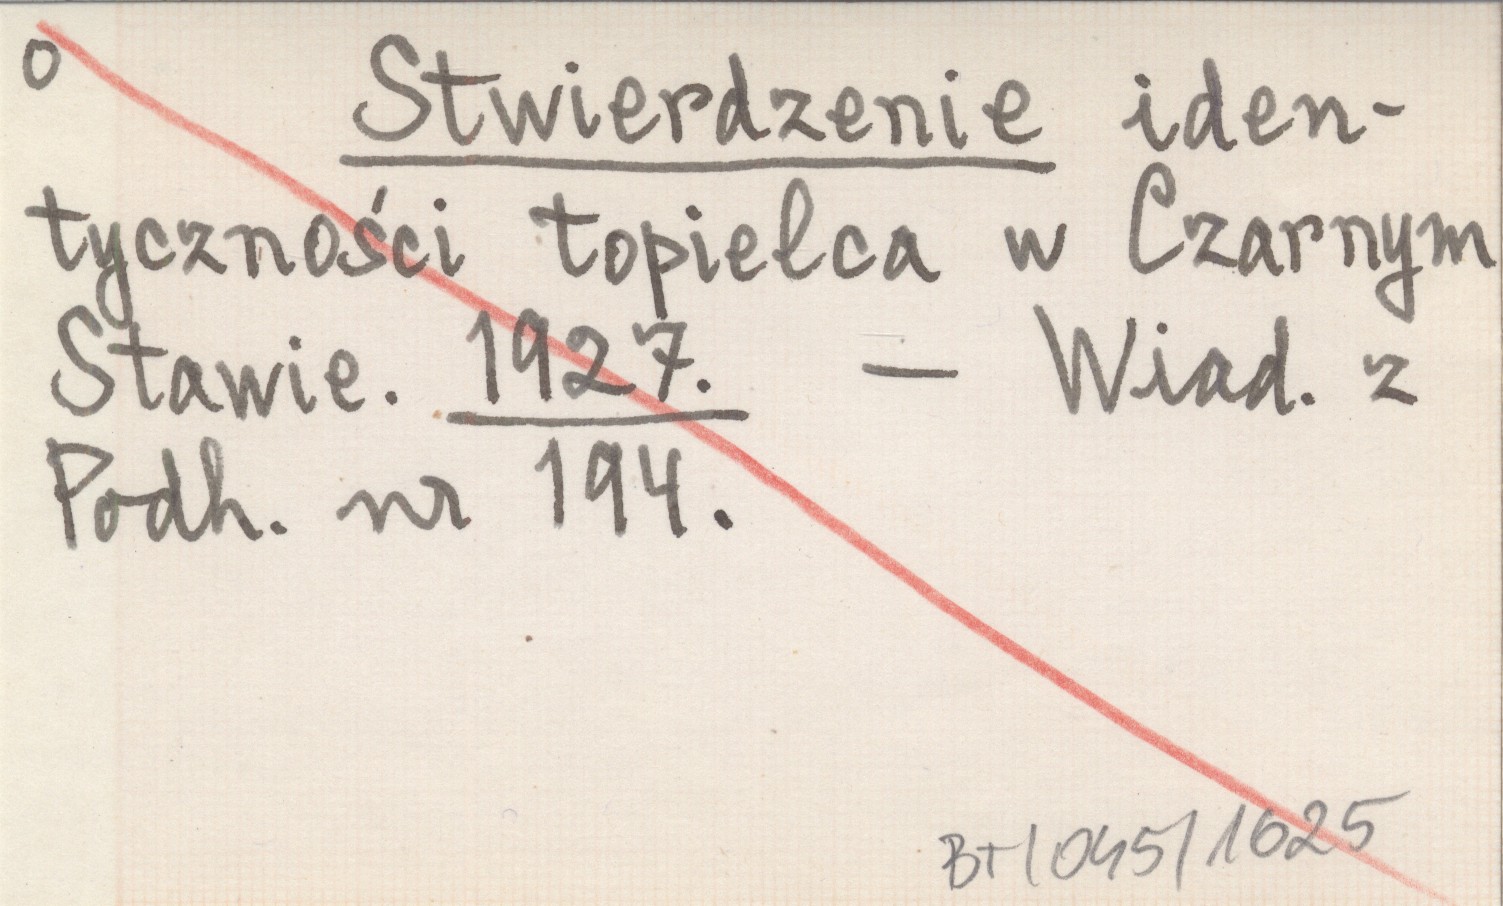 o Stwierdzenie iden-
tyczności topielca w Czarnym
Stawie. 1927. — Wiad. z
Podh. nr 194.
BT/045/1625